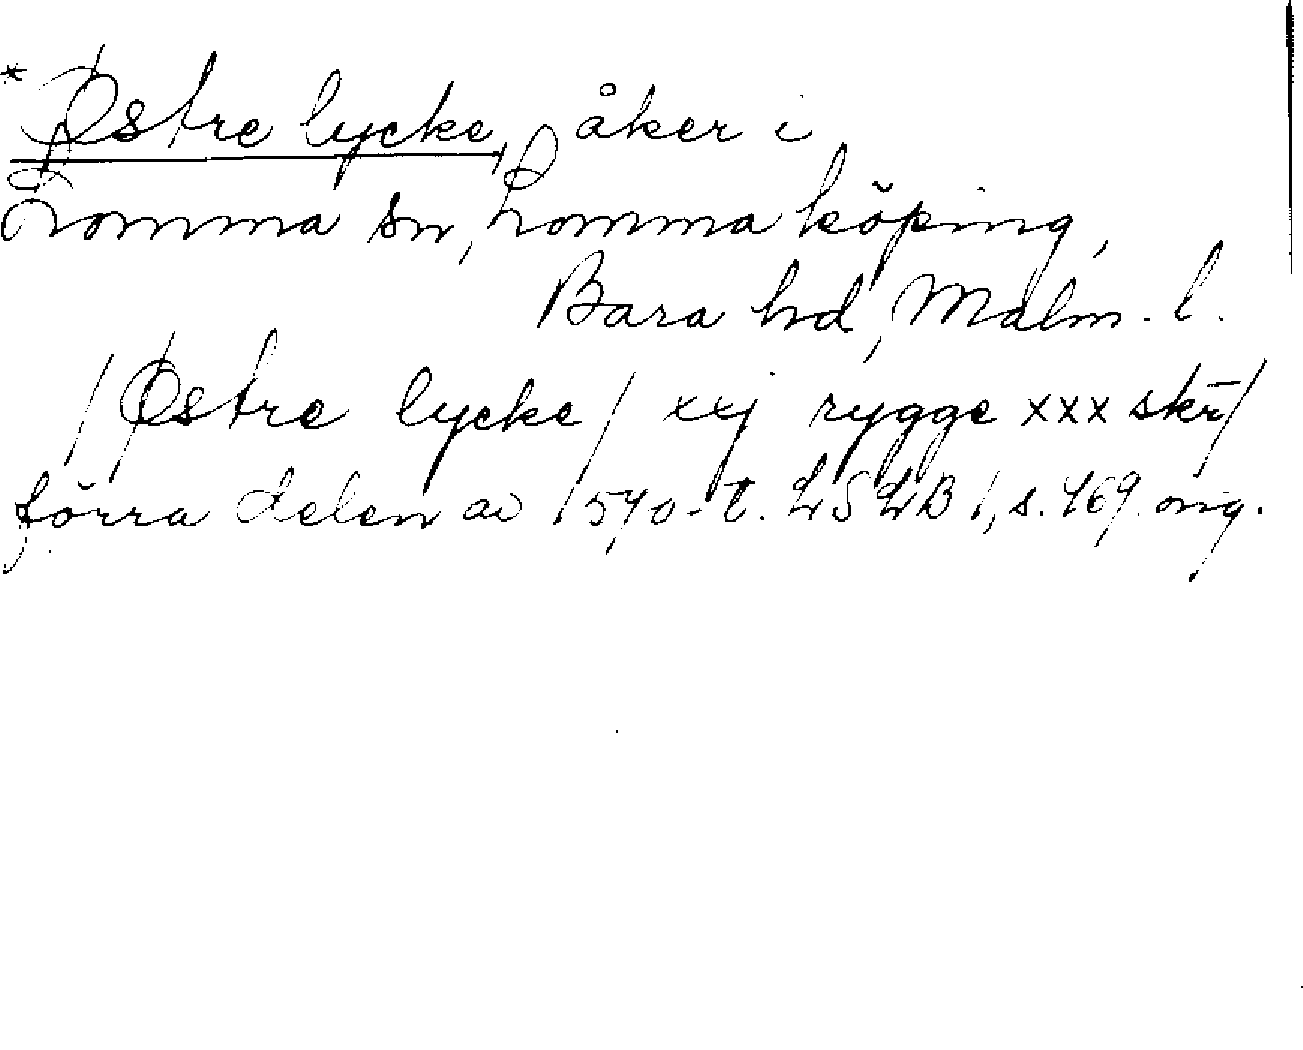 * Østre lycke, åker i
Lomma sn, Lomma köping,
Bara hd, Malm. l.
/Østre lycke/ xxj rygge xxx skr̄/
förra delen av 1570-t. LSLB 1, s. 469. orig.